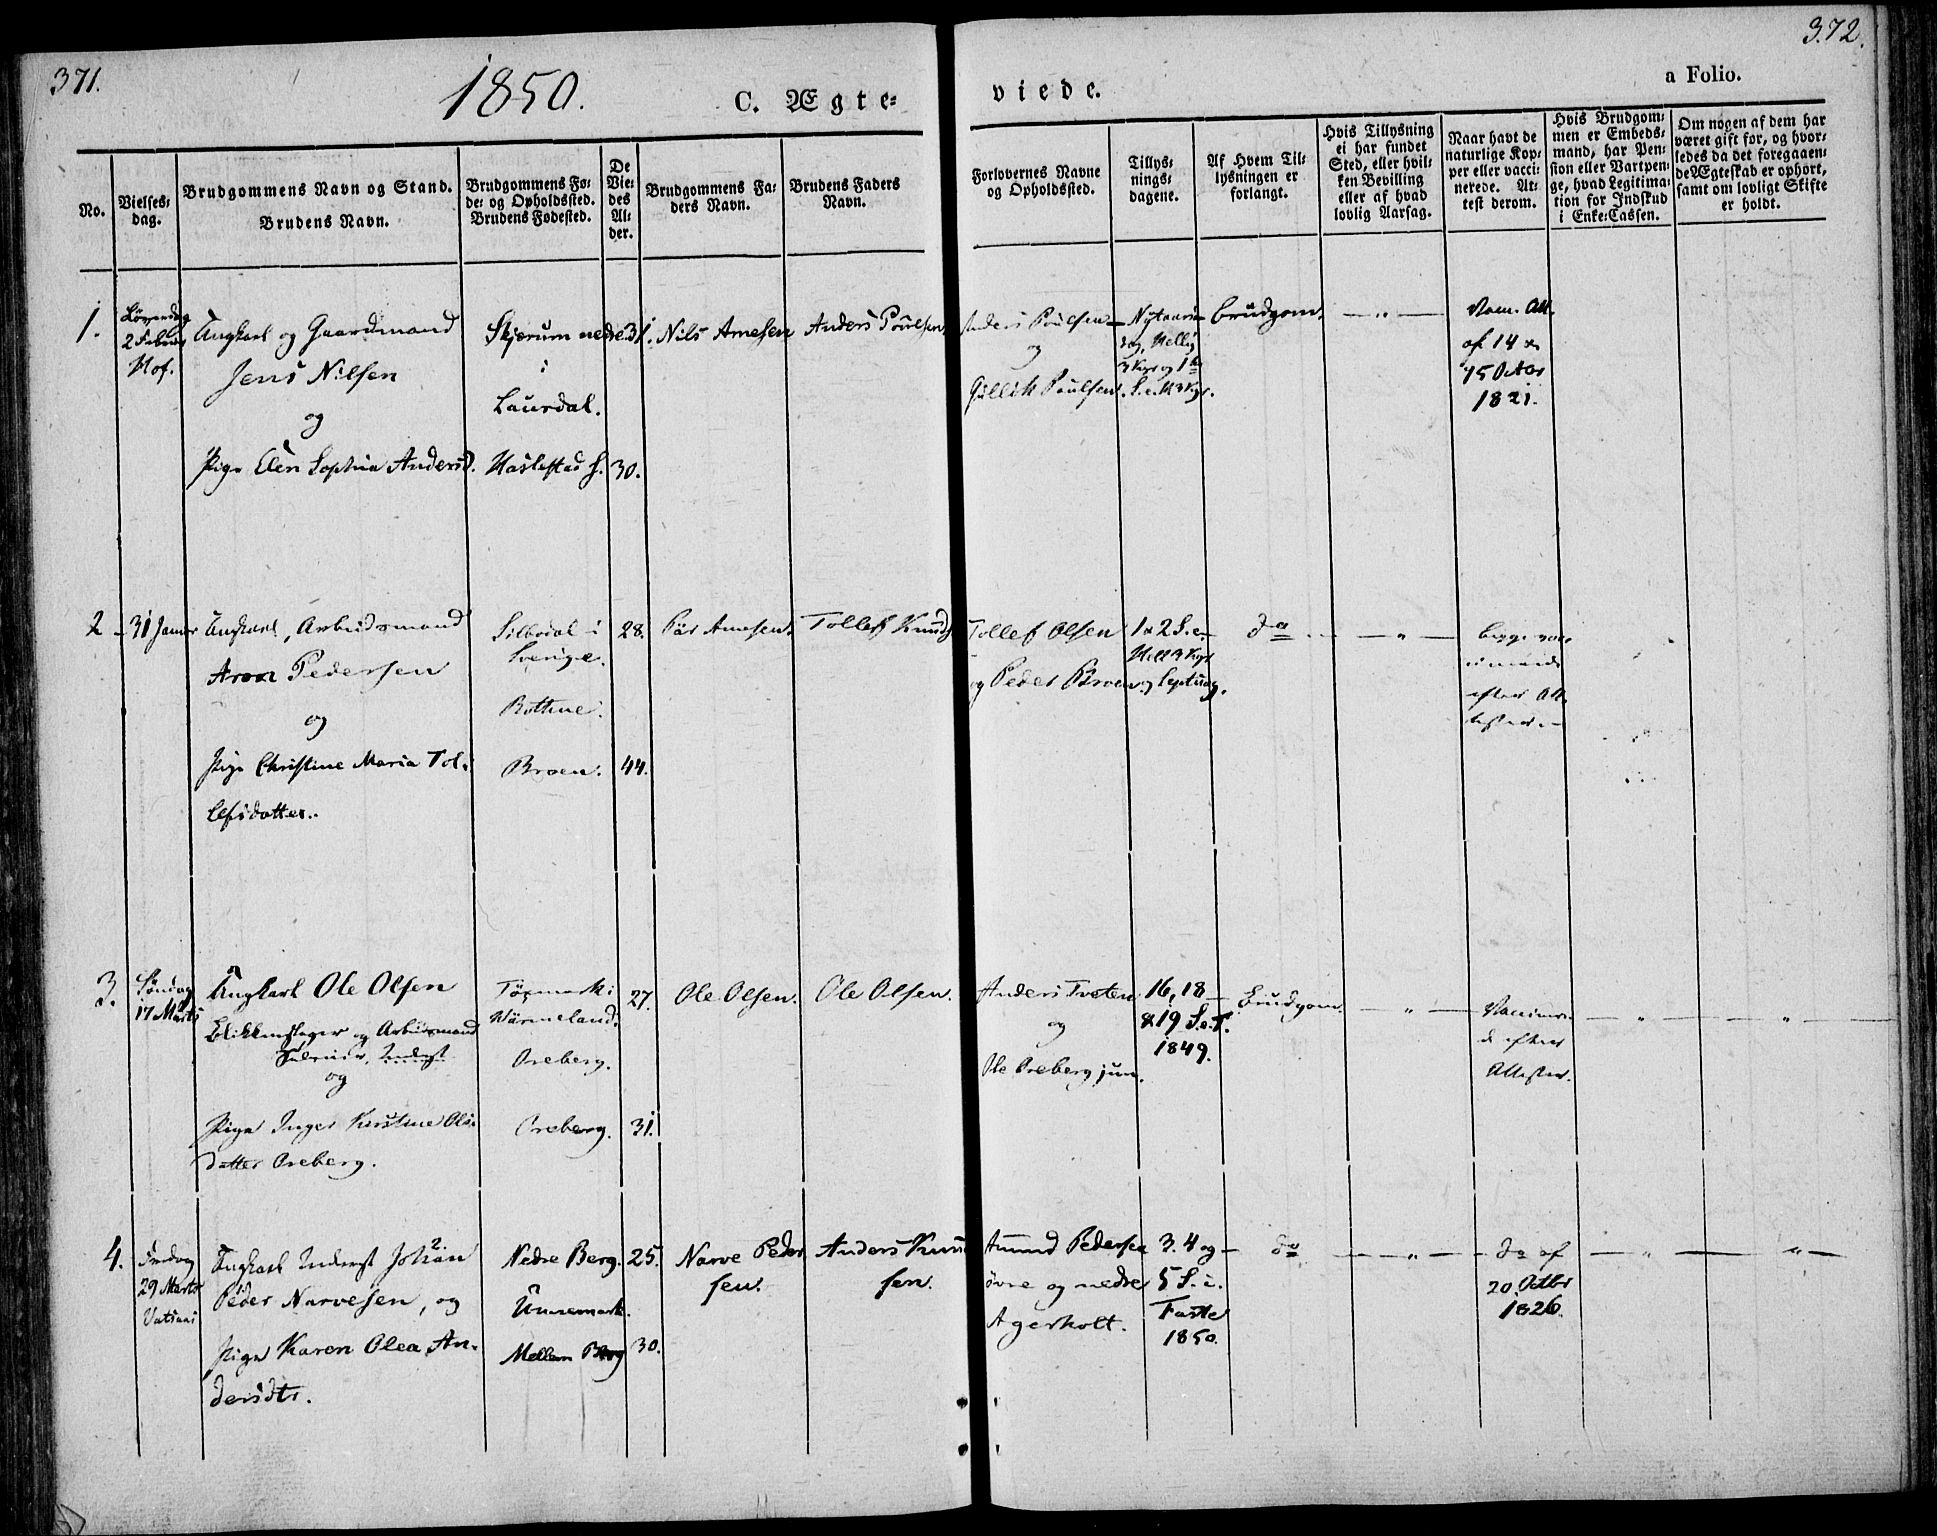 371.
1850.
C. Ægte-
viede.
a Folio.
372.
No.
Vielses-
dag.
Brudgommens Navn og Stand.
Brudens Navn.
Brudgommens Fø-
de- og Opholdssted.
Brudens Fødested.
De
Vie-
des
Al-
der.
Brudgommens Fa-
ders Navn.
Brudens Faders
Navn.
Forlovernes Navne
og Opholdssted.
Tillys-
nings-
dagene.
Af Hvem Til-
lysningen er
forlangt.
Hvis Tillysning
ei har fundet
Sted, eller hvil-
ken Bevilling
eller af hvad
lovlig Aarsag.
Naar havt de
naturlige Kop-
per eller vacci-
nerede. At-
test derom.
Hvis Brudgom-
men er Embeds-
mand, har Pen-
sion eller Vartpen-
ge, hvad Legitima-
tion for Indskud
i Enke-Cassen.
Om nogen af dem har
været gift før, og hvor-
ledes da det foregaaen-
de Ægteskab er ophørt,
samt om lovligt Skifte
er holdt.
1.
Løverdag
2 Febru
Hof.
Ungkarl og Gaardmand
Jens Nilsen
og
Pige Elen Sophia Andersd.
Skjerum nedre
i
Laurdal.
Haslestad
31.
30.
Nils Arnesen
Anders Poulsen
Anders Poulsen
og
Gullik Poulsen.
Nytaars
dag, Hellig
3 Kgr og 1
S. e. H 3 Kgr.
Brudgom.
Vacc. Att.
af 14 &
15 Octbr
1821.
2
31 Januar
Ungkarl, Arbeidsmand
Aron Pedersen
og
Pige Christine Maria Tol-
lefsdatter.
Silbodal i
Sverige.
Bottne.
Broen.
28.
44.
Pär Arnesen.
Tollef Knuds
Tollef Olsen
og Peder Broen
1 & 2 S. e.
Hell 3 Kgr
og Septuag.
do
begge vac-
efter At-
3.
Søndag
17 Marts
Ungkarl Ole Olsen
Blikkenslager og Arbeidsmand
og
Pige Inger Kirstine Ols-
datter Oreberg.
Töcmark i
Wärmeland.
Oreberg.
Oreberg.
27.
31.
Ole Olsen.
Ole Olsen.
Anders Tveten
og
Ole Oreberg jun.
16, 18
& 19 S. e. T.
1849.
Brudgom
Vaccinere-
de efter
Attester.
4.
29 Marts
Ungkarl Inderst Johan
Peder Narvesen, og
Pige Karen Olea An-
dersdtr.
Nedre Berg.
Unnemark.
Mellem Berg
25.
30.
Narve Peder
sen.
Anders Knud
sen.
Amund Pedersen
øvre og nedre
Agerholt.
3. 4 og
5 S. i.
Faste
1850.
do
do af
20 Octbr
1826.